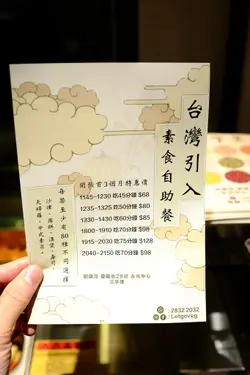 台灣引入
素食自助餐
開張首3個月特惠價
1145-1230 吃45分鐘 $68
1235-1325 吃50分鐘 $80
1330-1430 吃60分鐘 $85
1800-1910 吃70分鐘 $98
1915-2030 吃75分鐘 $128
2040-2150 吃70分鐘 $98
每餐至少有80種不同選擇
沙律、席料、漢堡、壽司、
天婦羅、中式素菜。
銅鑼灣 登龍街28號 永光中心
三字樓
: 2832 2032
: Letsgoveg